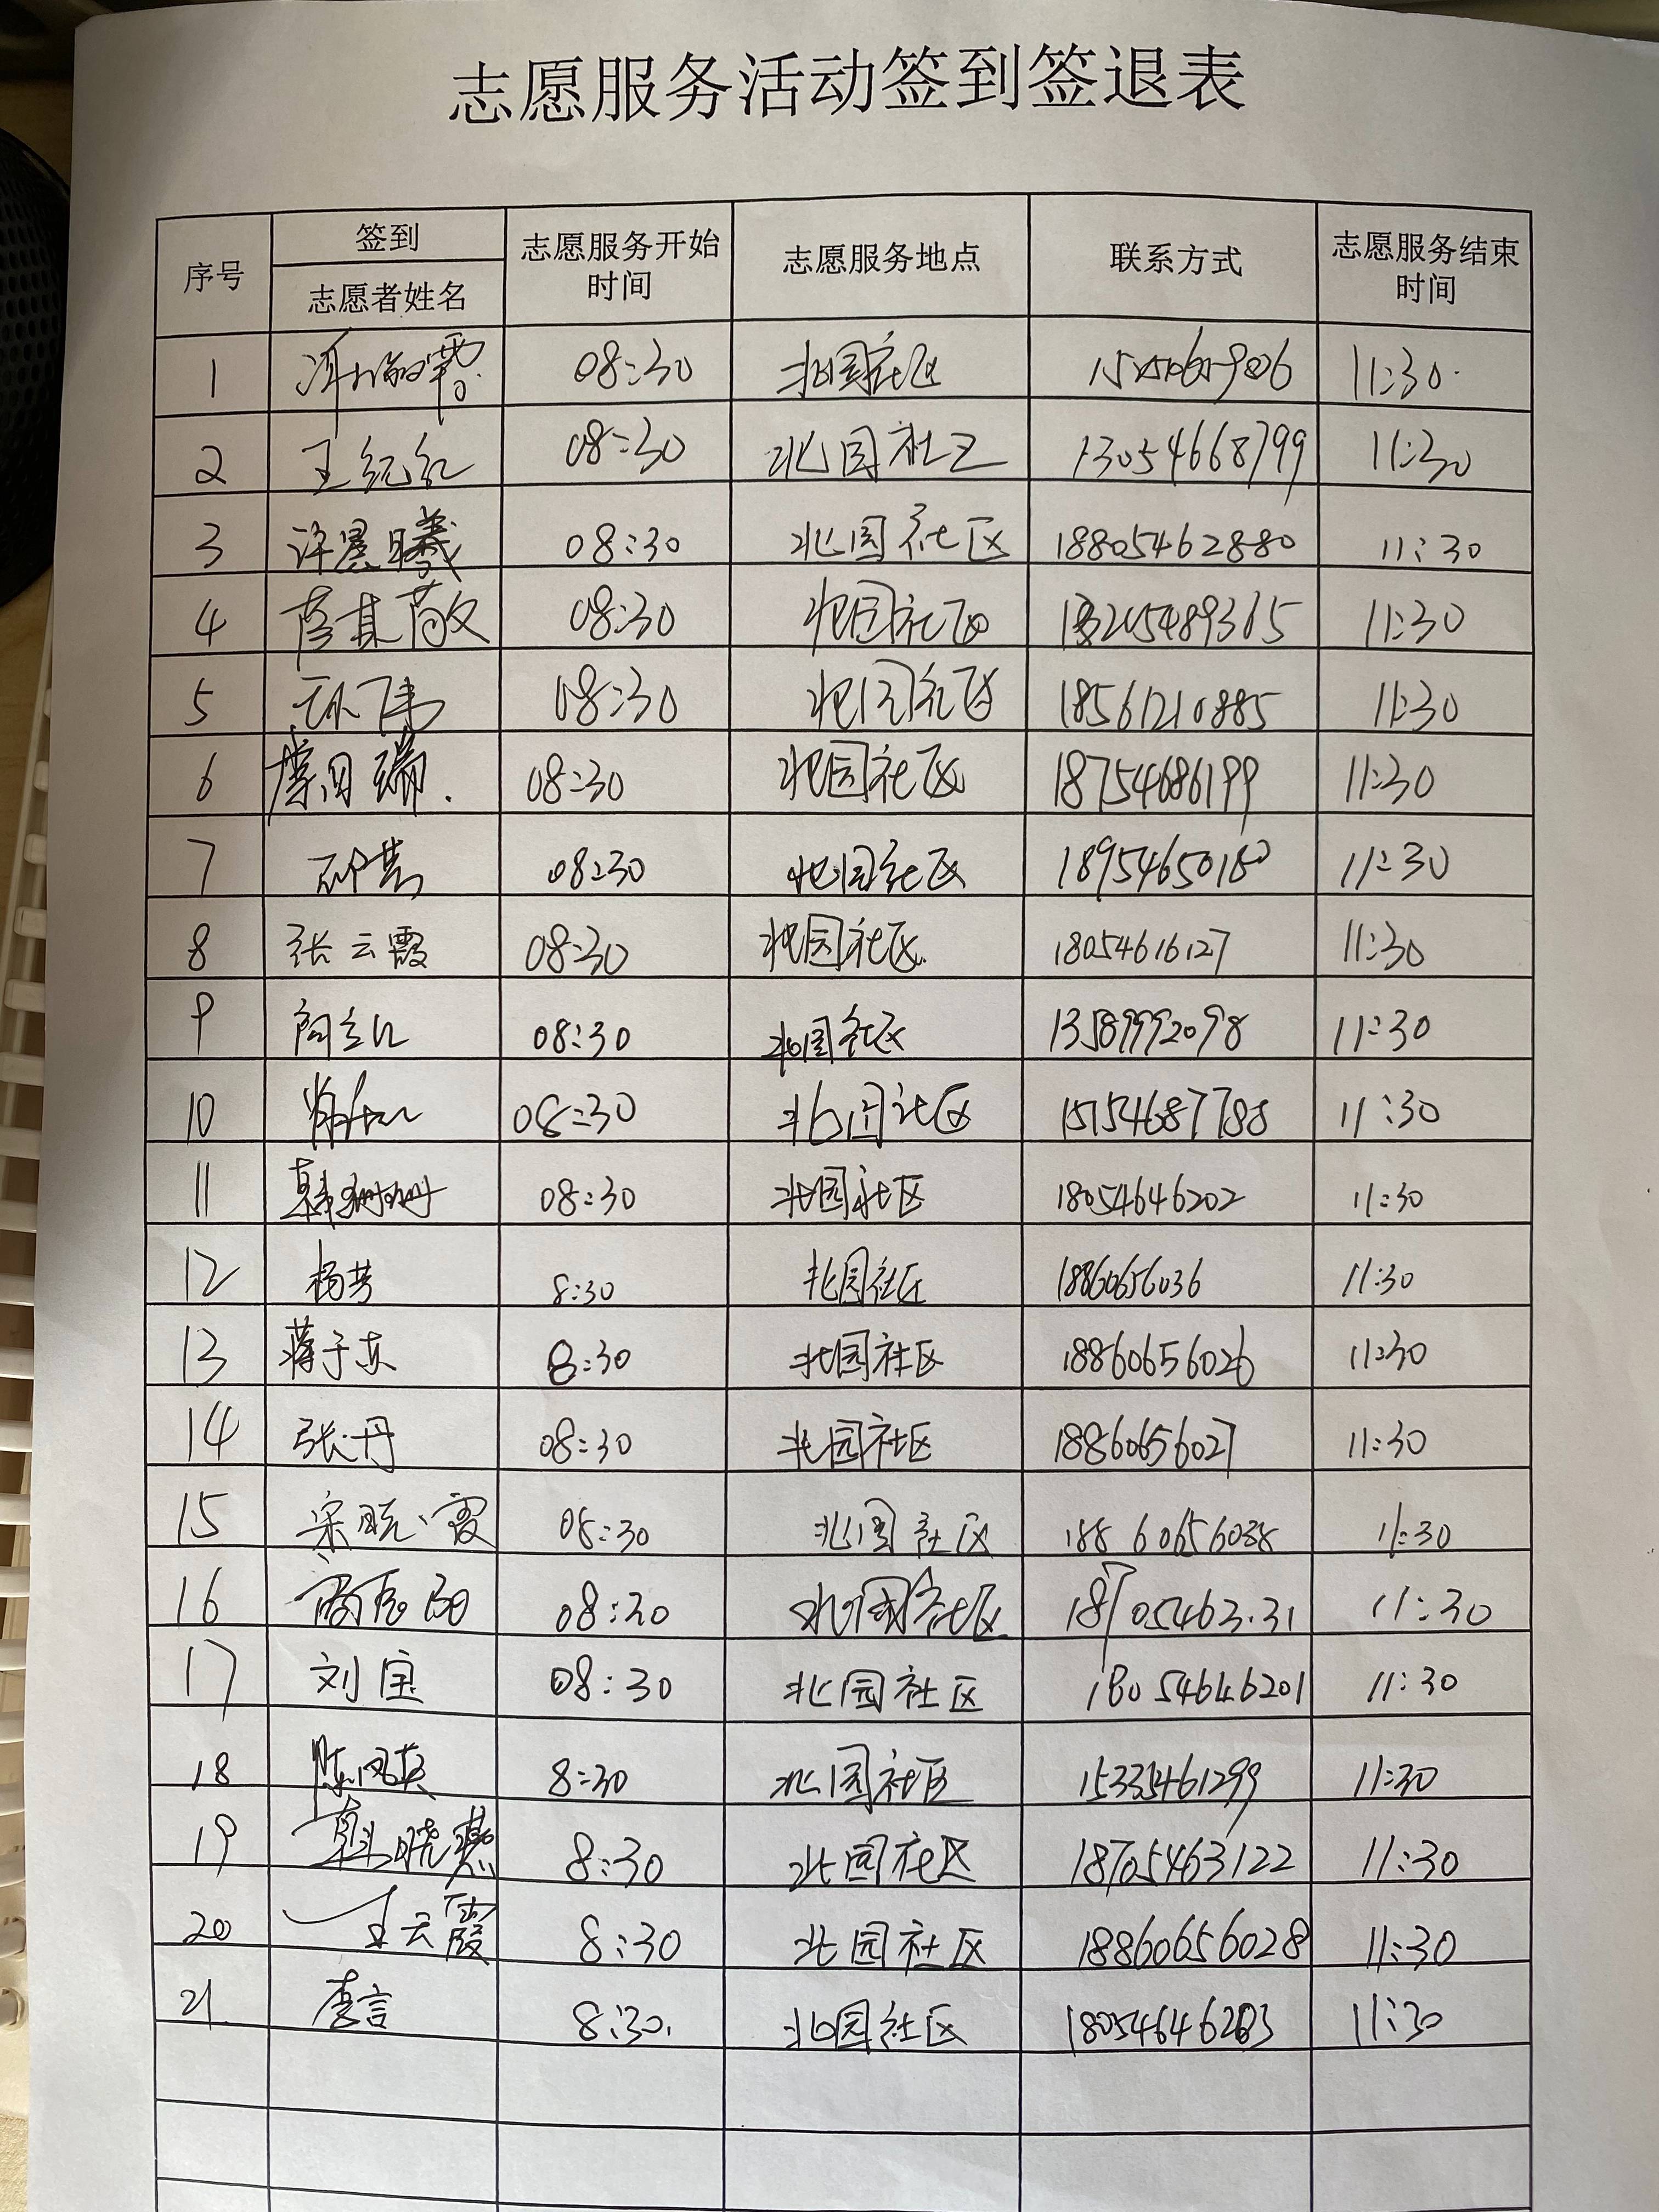 志愿服务活动签到签退表
序号 签到 志愿者姓名 志愿服务开始时间 志愿服务地点 联系方式 志愿服务结束时间
1 08:30 北园社区 11:30
2 王纪红 08:30 北园社区 13054668799 11:30
3 许晨曦 08:30 北园社区 18805462880 11:30
4 08:30 北园社区 11:30
5 08:30 北园社区 18561210885 11:30
6 08:30 北园社区 18754686199 11:30
7 08:30 北园社区 18954650180 11:30
8 张云霞 08:30 北园社区 18054616127 11:30
9 08:30 北园社区 13589992098 11:30
10 08:30 北园社区 15154687788 11:30
11 韩珊珊 08:30 北园社区 18054646202 11:30
12 杨芳 8:30 北园社区 18860656036 11:30
13 蒋子东 8:30 北园社区 18860656026 11:30
14 张丹 08:30 北园社区 18860656027 11:30
15 宋晓霞 08:30 北园社区 18860656038 11:30
16 08:30 北园社区 11:30
17 刘宝 08:30 北园社区 18054646201 11:30
18 陈凤英 8:30 北园社区 15335461299 11:30
19 韩晓燕 8:30 北园社区 18705463122 11:30
20 王云霞 8:30 北园社区 18860656028 11:30
21 李言 8:30 北园社区 18054646203 11:30